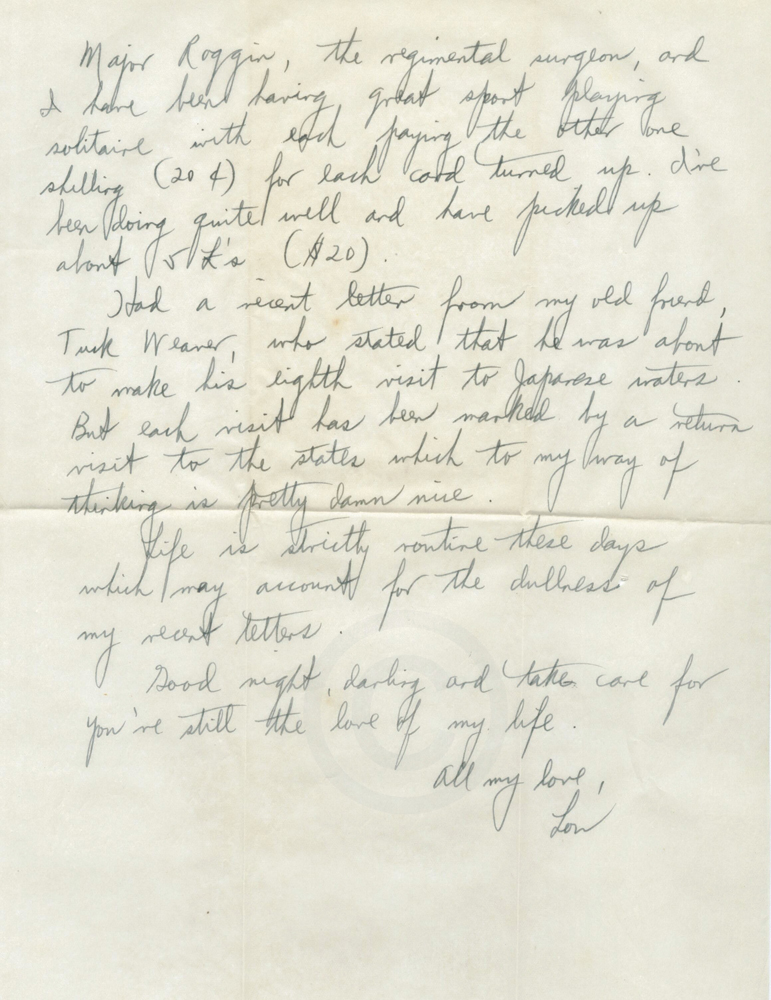 Major Roggin, the regimental surgeon, and
I have been having great sport playing
solitaire with each paying the other one
shilling (20 ¢) for each card turned up. I've
been doing quite well and have picked up
about 5 £'s ($20).
Had a recent letter from my old friend,
Tuck Weaver, who stated that he was about
to make his eighth visit to Japanese waters.
But each visit has been marked by a return
visit to the states which to my way of
thinking is pretty damn nice.
Life is strictly routine these days
which may account for the dullness of
my recent letters.
Good night, darling and take care for
you're still the love of my life.
All my love,
Lou